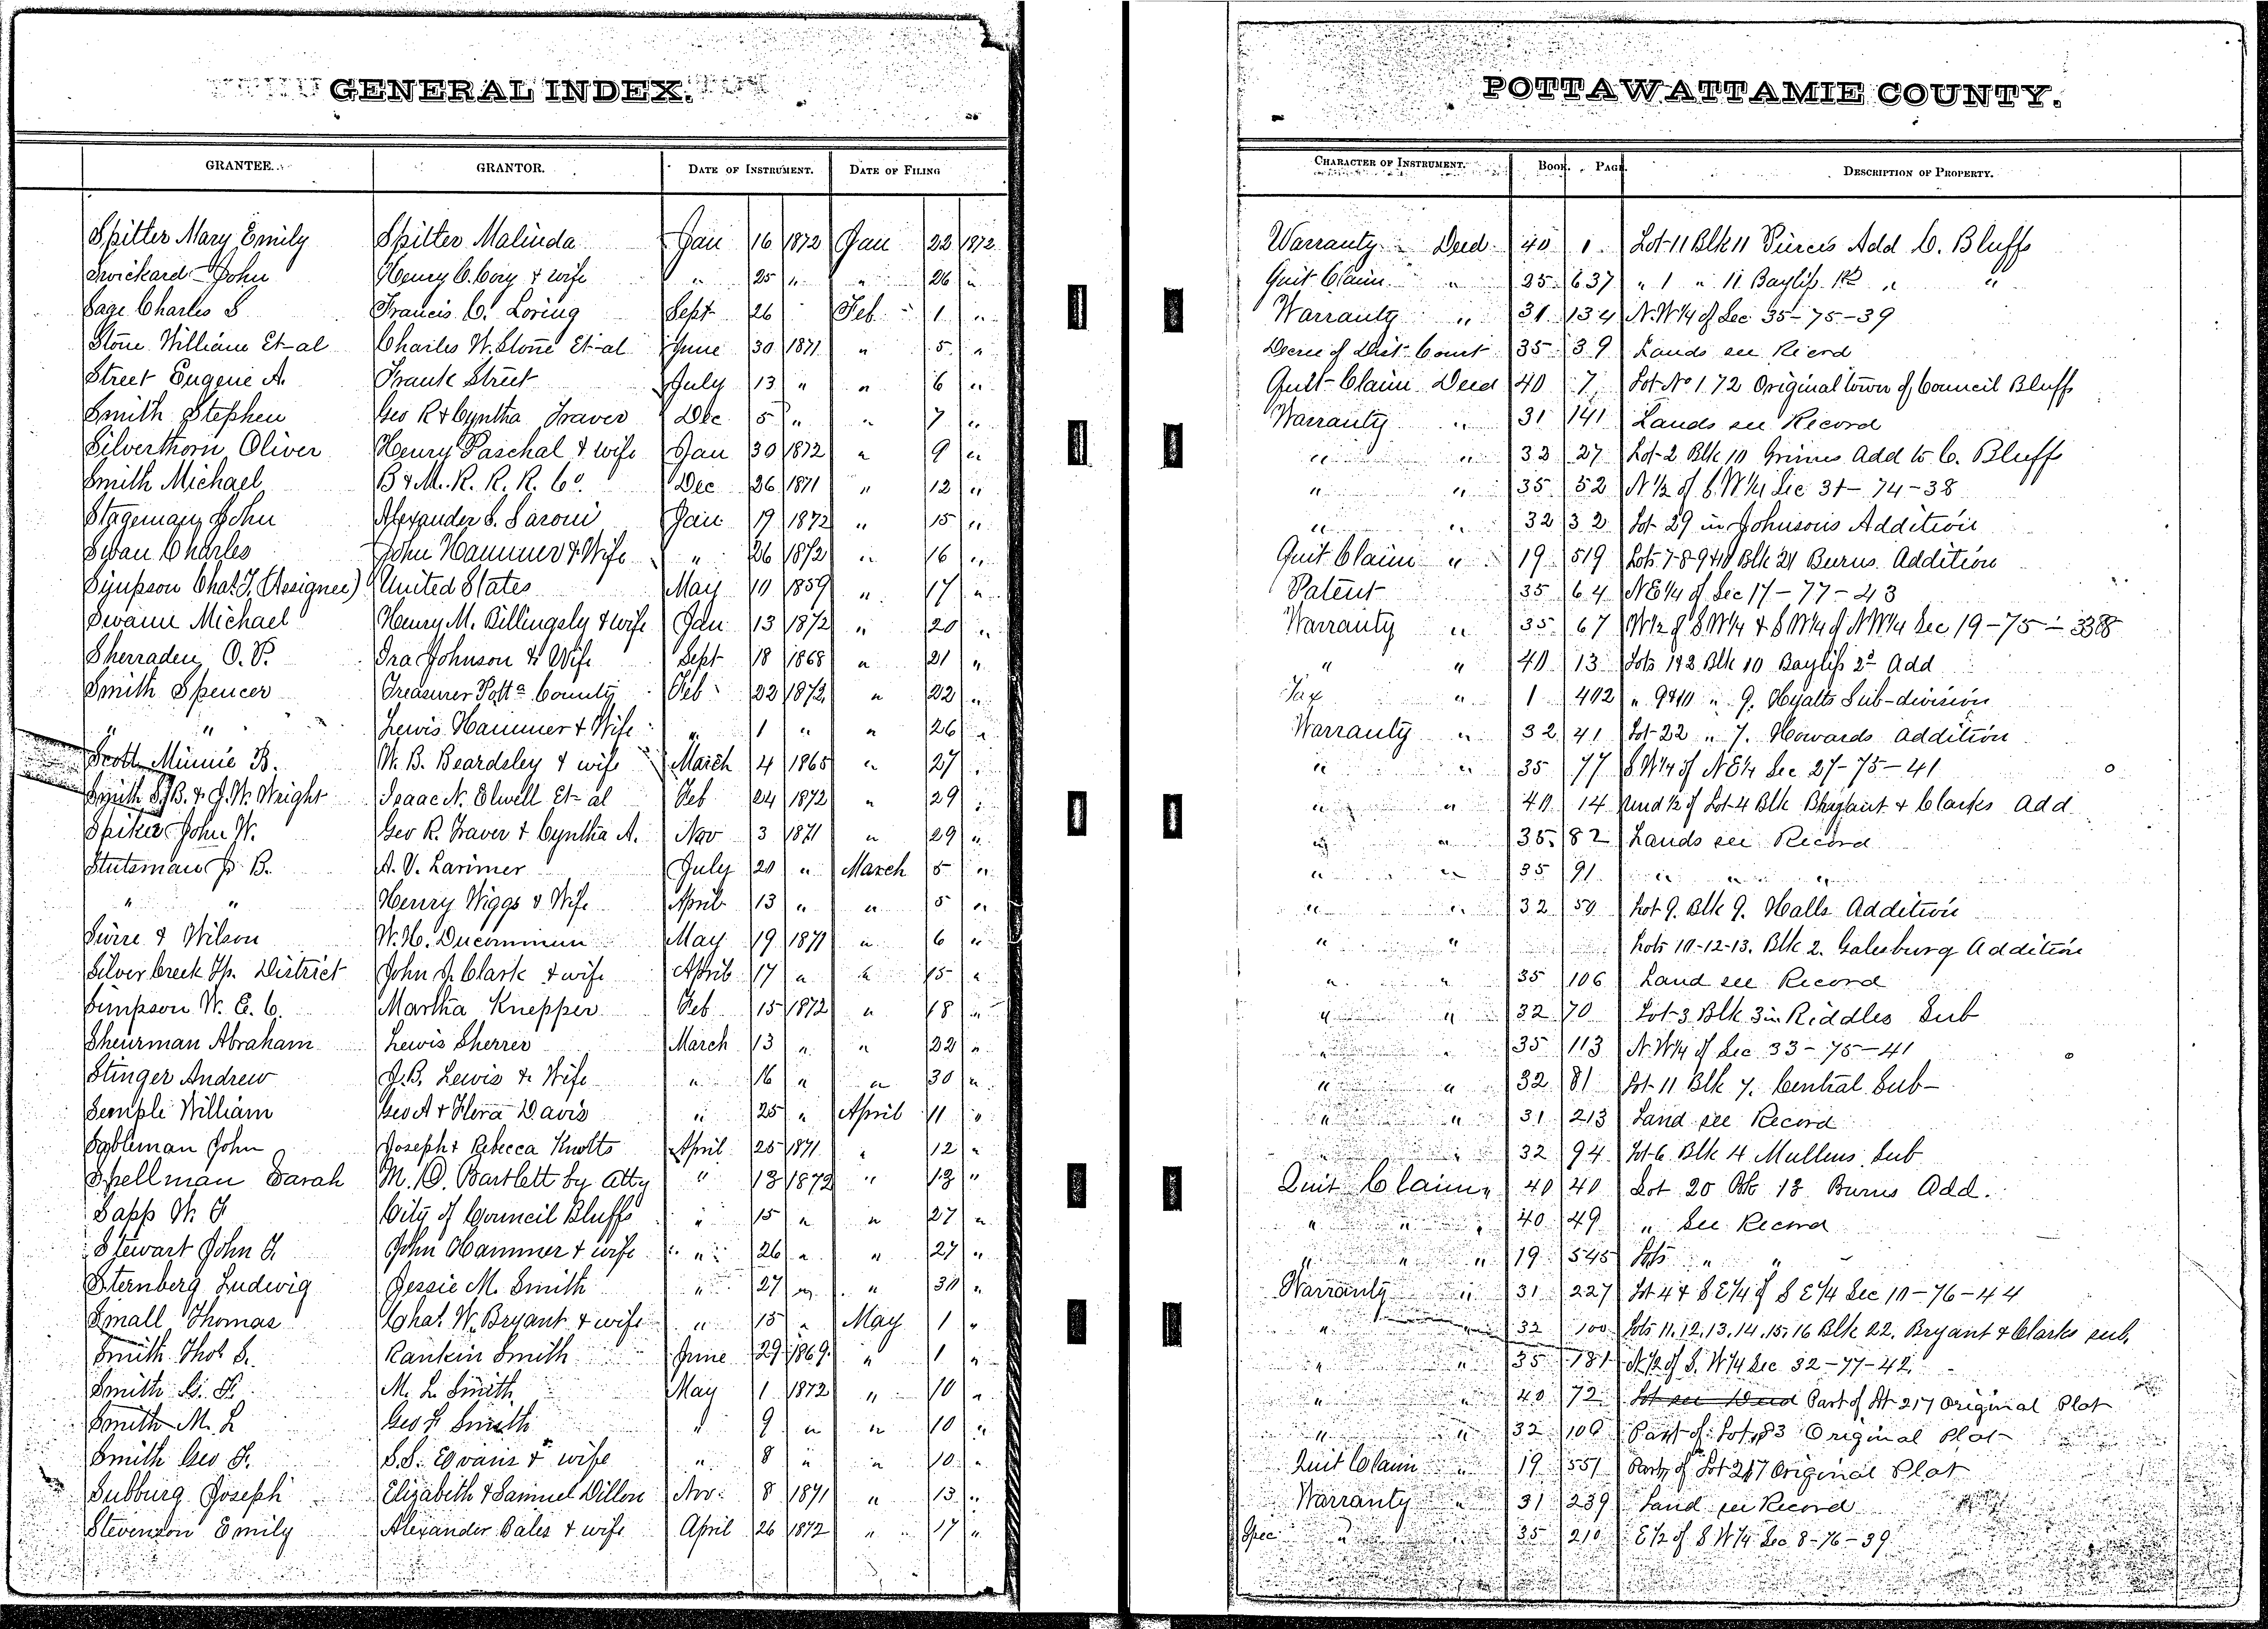 GENERAL INDEX. POTTAWATTAMIE COUNTY.
GRANTEE. GRANTOR. DATE OF INSTRUMENT. DATE OF FILING CHARACTER OF INSTRUMENT. BOOK. PAGE. DESCRIPTION OF PROPERTY.
Spitter Mary Emily Spitter Malinda Jan 16 1872 Jan 22 1872 Warranty Deed 40 1 Lot 11 Blk 11 Pierces Add C. Bluffs
Swickard John Henry C. Cory & wife " 25 " " 26 " Quit Claim " 25 637 " 1 " 11 Bayliss 1st " "
Sage Charles S Francis C. Loring Sept 26 Feb 1 " Warranty " 31 134 N.W 1/4 of Sec 35-75-39
Stone William Et-al Charles W. Stone Et-al June 30 1871 " 5 " Decree of Dist Court 35 39 Lands see Record
Street Eugene A. Frank Street July 13 " " 6 " Quit-Claim Deed 40 7 Lot No 172 Original town of Council Bluffs
Smith Stephen Geo R & Cyntha Traver Dec 5 " " 7 " Warranty " 31 141 Lands see Record
Silverthorn Oliver Henry Paschal & wife Jan 30 1872 " 9 " " " 32 27 Lot-2 Blk 10 Grimes Add to C. Bluffs
Smith Michael B & M. R. R. R. Co. Dec 26 1871 " 12 " " " 35 52 N 1/2 of S.W 1/4 Sec 31-74-38
Stageman John Alexander S. Saroni Jan 19 1872 " 15 " " " 32 32 Lot 29 in Johnsons Addition
Swan Charles John Hammer & Wife " 26 1872 " 16 " Quit Claim " 19 519 Lots 7-8-9 & 10 Blk 21 Burns Addition
Simpson Chas. T. (Assignee) United States May 10 1859 " 17 " Patent 35 64 N E 1/4 of Sec 17-77-43
Swaim Michael Henry M. Billingsly & wife Jan 13 1872 " 20 " Warranty " 35 67 W 1/2 of S W 1/4 & S W 1/4 of N W 1/4 Sec 19-75-38
Sherraden O. P. Ira Johnson & Wife Sept 18 1868 " 21 " " " 40 13 Lots 1 & 2 Blk 10 Bayliss 2d Add
Smith Spencer Treasurer Potta County Feb 22 1872 " 22 " Tax " 1 402 " 9 & 10 " 9. Hyatts Sub-division
" " Lewis Hammer & Wife " 1 " " 26 " Warranty " 32 41 Lot-22 " 7. Howards Addition
Scott Minnie B. W. B. Beardsley & wife March 4 1865 " 27 " " " 35 77 S W 1/4 of N E 1/4 Sec 27-75-41
Smith S. B. & J. W. Wright Isaac N. Elwell Et-al Feb 24 1872 " 29 " " " 40 14 Und 1/2 of Lot 4 Blk Bryant & Clarks Add
Spiker John W. Geo R. Traver & Cyntha A. Nov 3 1871 " 29 " " " 35 82 Lands see Record
Stutsman J. B. A. V. Larimer July 20 " March 5 " " " 35 91 " " "
" " Henry Wiggs & Wife April 13 " " 5 " " " 32 50 Lot 9. Blk 9. Halls Addition
Swire & Wilson W. H. Ducommun May 19 1871 " 6 " " " Lots 10-12-13. Blk 2. Galesburg Addition
Silver Creek Tp. District John J. Clark & wife April 17 " " 15 " " " 35 106 Land see Record
Simpson W. E. C. Martha Knepper Feb 15 1872 " 18 " " " 32 70 Lot 3 Blk 3 in Riddles Sub
Sheurman Abraham Lewis Sherrer March 13 " " 22 " " " 35 113 N.W 1/4 of Sec 33-75-41
Stinger Andrew J. B. Lewis & Wife " 16 " " 30 " " " 32 81 Lot 11 Blk 7. Central Sub-
Semple William Geo A & Flora Davis " 25 " April 11 " " " 31 213 Land see Record
Sableman John Joseph & Rebecca Knotts April 25 1871 " 12 " " " 32 94 Lot 6 Blk 4 Mullens Sub
Spellman Sarah M. D. Bartlett by Atty " 13 1872 " 13 " Quit Claim " 40 40 Lot 20 Blk 13 Burns Add.
Sapp W. F City of Council Bluffs " 15 " " 27 " " " 40 49 " See Record
Stewart John T. John Hammer & wife " 26 " " 27 " " " 19 545 Lots " "
Sternberg Ludwig Jessie M. Smith " 27 " " 30 " Warranty " 31 227 Lot 4 & S E 1/4 of S E 1/4 Sec 10-76-44
Small Thomas Chas. W. Bryant & wife " 15 " May 1 " " " 32 100 Lots 11. 12. 13. 14. 15. 16 Blk 22. Bryant & Clarks sub.
Smith Thos S. Rankin Smith June 29 1869 " 1 " " " 35 181 N 1/2 of S. W 1/4 Sec 32-77-42
Smith G. F. M. L. Smith May 1 1872 " 10 " " " 40 72 Lot see Deed Part of Lt 217 Original Plat
Smith M. L Geo F Smith " 9 " " 10 " " " 32 109 Part of Lot 183 Original Plat
Smith Geo F. S. S. Evans & wife " 8 " " 10 " Quit Claim " 19 551 Part of Lot 217 Original Plat
Subburg Joseph Elizabeth & Samuel Dillon Nov. 8 1871 " 13 " Warranty " 31 239 Land see Record
Stevenson Emily Alexander Bales & wife April 26 1872 " 17 " Spec " 35 210 E 1/2 of S W 1/4 Sec 8-76-39